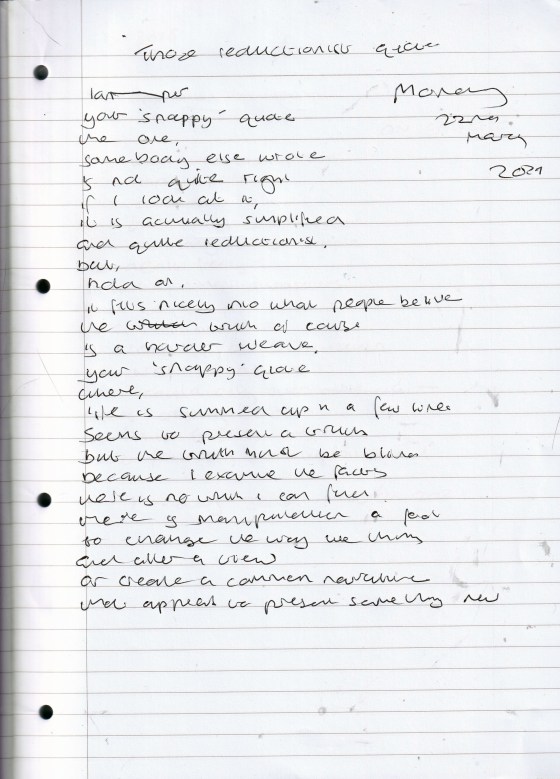 Those reductionist quote
Monday
22nd
March
2021
your 'snappy' quote
the one,
somebody else wrote
is not quite right
if I look at it,
it is actually simplified
and quite reductionist.
but,
hold on,
it fits nicely into what people believe
the truth of course
is a harder weave.
your 'snappy' quote
where,
life is summed up in a few lines
seems to present a truth
but the truth must be blind
because I examine the facts
there is no truth I can find.
there is manipulation a tool
to change the way we think
and alter a view
or create a common narrative
that appears to present something new